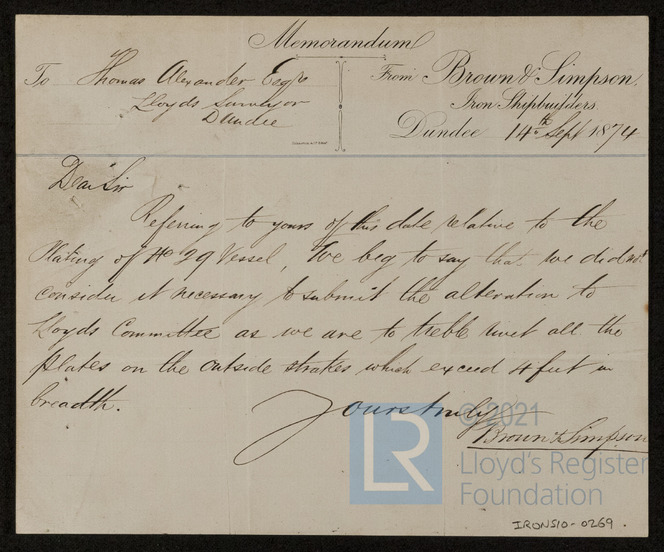 Memorandum
To Thomas Alexander Esqre
Lloyds Surveyor
Dundee
From Brown & Simpson.
Iron Shipbuilders.
Dundee 14th Sept 1874
Dear Sir
Referring to yours of this date relative to the
Plating of No 29 Vessel, We beg to say that we did not
consider it necessary to submit the alteration to
Lloyds Committee as we are to treble rivet all the
plates on the outside strakes which exceed 4 feet in
breadth.
Yours truly
Brown & Simpson
LR
© 2021
Lloyd's Register
Foundation
IRON510-0269.